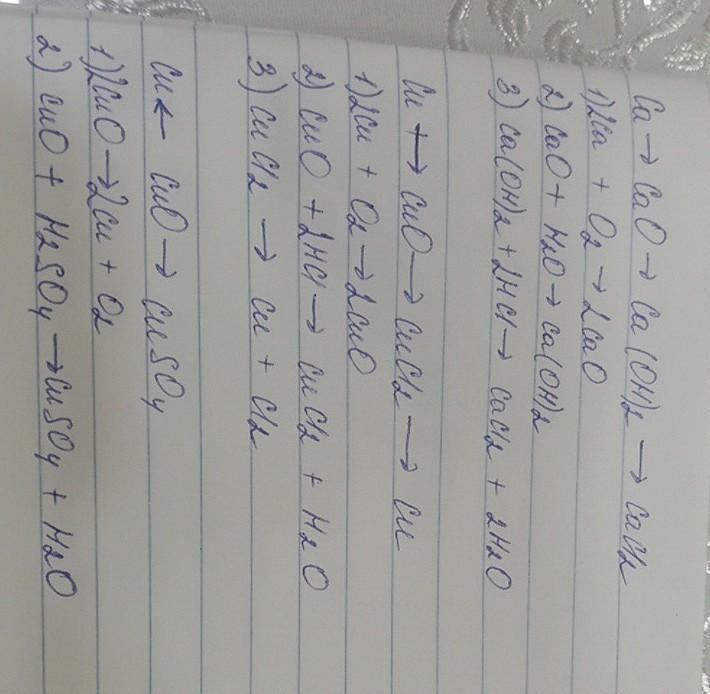 Ca → CaO → Ca(OH)2 → CaCl2
1) 2Ca + O2 → 2CaO
2) CaO + H2O → Ca(OH)2
3) Ca(OH)2 + 2HCl → CaCl2 + 2H2O
Cu → CuO → CuCl2 → Cu
1) 2Cu + O2 → 2CuO
2) CuO + 2HCl → CuCl2 + H2O
3) CuCl2 → Cu + Cl2
Cu ← CuO → CuSO4
1) 2CuO → 2Cu + O2
2) CuO + H2SO4 → CuSO4 + H2O